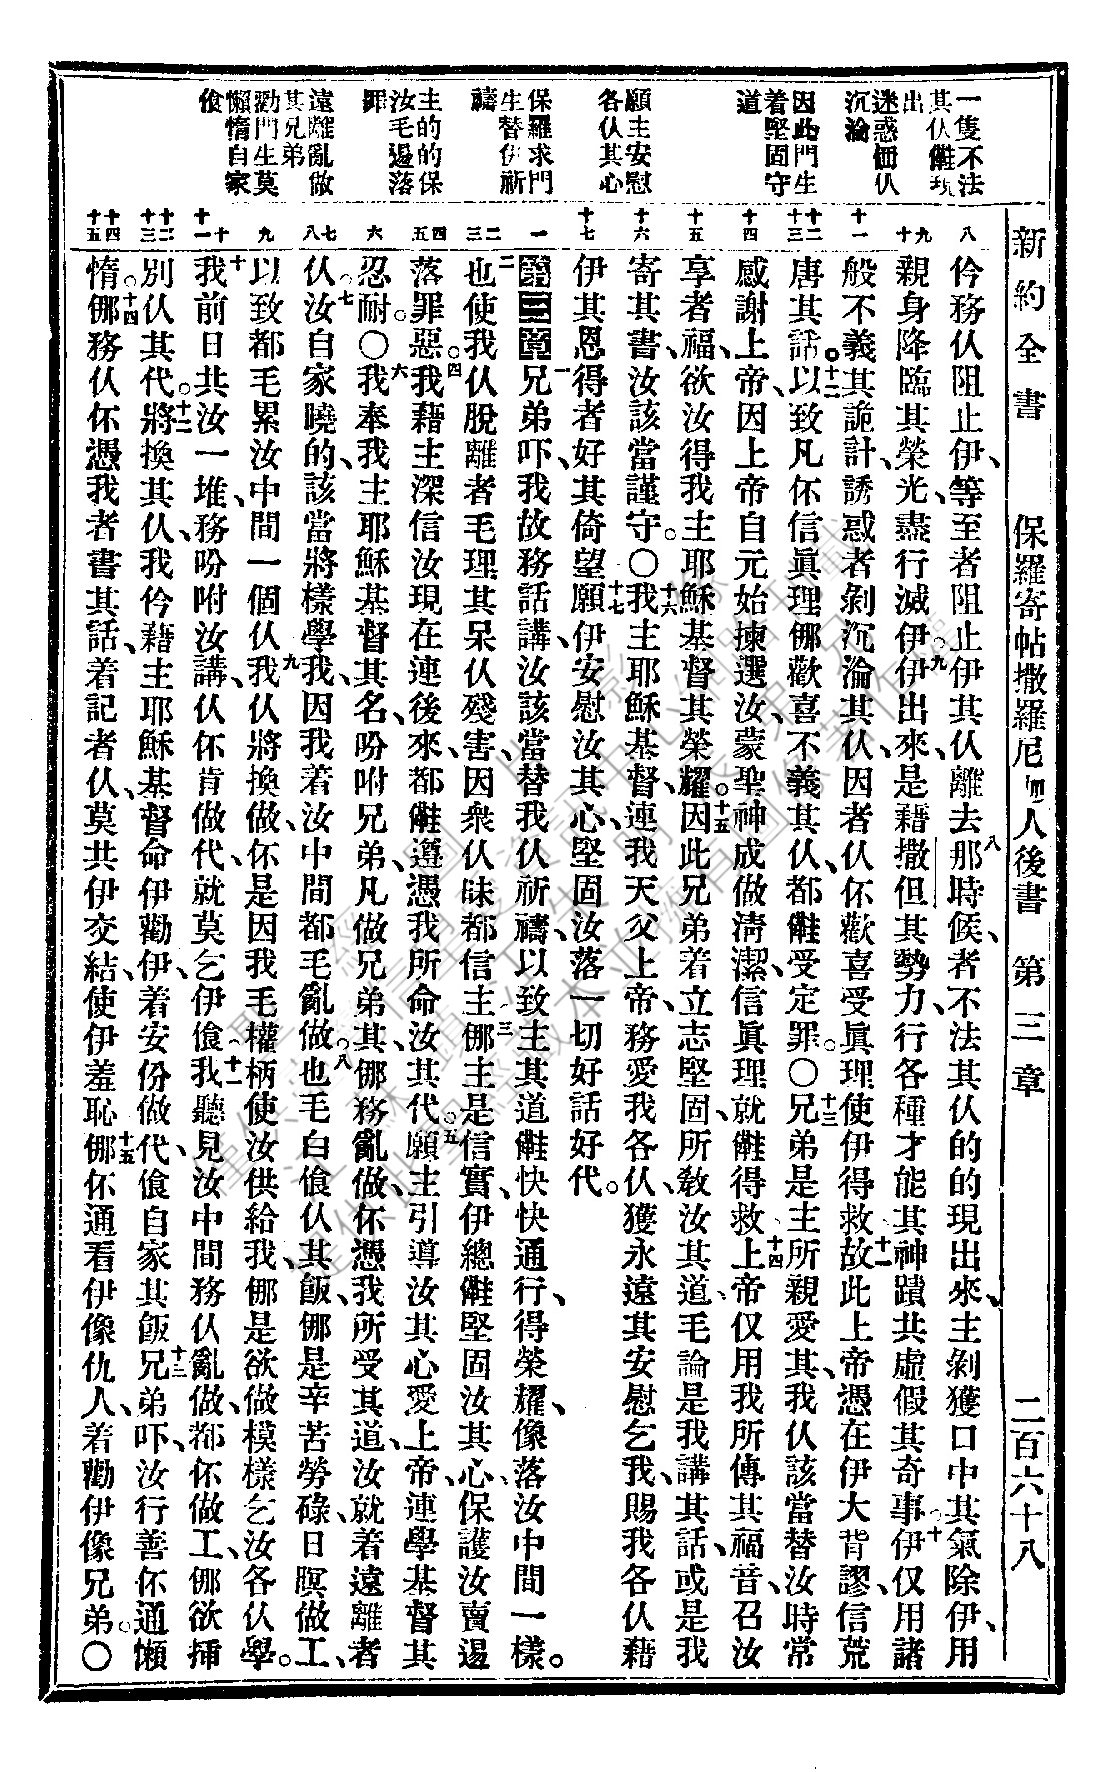 新約全書 保羅寄帖撒羅尼迦人後書 第三章 二百六十八
一隻不法
其仈𣍐現
出
迷惑㑚仈
沉淪
因此門生
着堅固守
道
願主安慰
各仈其心
保羅求門
生替伊祈
禱
主的的保
汝毛遏落
罪
遠離亂做
其兄弟
勸門生莫
懶惰自家
食
八
九
十
十一
十二
十三
十四
十五
十六
十七
一
二
三
四
五
六
七
八
九
十
十一
十二
十三
十四
十五
伶務仈阻止伊、等至者阻止伊其仈離去八那時候、者不法其仈的的現出來、主剝獲口中其氣除伊、用
親身降臨其榮光、盡行滅伊。九伊出來、是藉撒但其勢力、行各種才能其神蹟共虛假其奇事十伊仅用諸
般不義其詭計、誘惑者剝沉淪其仈、因者仈伓歡喜受眞理使伊得救十一故此上帝憑在伊大背謬、信荒
唐其話。十二以致凡伓信眞理、㑚歡喜不義其仈、都𣍐受定罪。〇十三兄弟是主所親愛其、我仈該當替汝時常
感謝上帝、因上帝自元始揀選汝、蒙聖神成做淸潔、信眞理、就𣍐得救十四上帝仅用我所傳其福音、召汝
享者福、欲汝得我主耶穌基督其榮耀。十五因此兄弟着立志堅固、所教汝其道、毛論是我講其話、或是我
寄其書、汝該當謹守。〇十六我主耶穌基督、連我天父上帝、務愛我各仈、獲永遠其安慰乞我、賜我各仈藉
伊其恩得者好其倚望十七願伊安慰汝其心、堅固汝落一切好話好代。
第三章一兄弟吓、我故務話講、汝該當替我仈祈禱、以致主其道𣍐快快通行、得榮耀、像落汝中間一樣。
二也使我仈脫離者毛理其呆仈殘害、因衆仈昧都信主三㑚主是信實、伊總𣍐堅固汝其心、保護汝賣遏
落罪惡。四我藉主深信汝現在連後來、都𣍐遵憑我所命汝其代。五願主引導汝其心愛上帝、連學基督其
忍耐。〇六我奉我主耶穌基督其名、吩咐兄弟、凡做兄弟其、㑚務亂做、伓憑我所受其道、汝就着遠離者
仈。七汝自家曉的、該當將樣學我、因我着汝中間都毛亂做。八也毛白食仈其飯、㑚是辛苦勞碌、日暝做工、
以致都毛累汝中間一個仈九我仈將換做、伓是因我毛權柄使汝供給我、㑚是欲做模樣乞汝各仈學。
十我前日共汝一堆、務吩咐汝講、仈伓肯做代、就莫乞伊食十一我聽見汝中間務仈亂做、都伓做工、㑚欲揷
別仈其代。十二將換其仈、我伶藉主耶穌基督命伊勸伊、着安份做代、食自家其飯十三兄弟吓、汝行善伓通懶
惰。十四㑚務仈伓憑我者書其話、着記者仈、莫共伊交結、使伊羞恥十五㑚伓通看伊像仇人、着勸伊像兄弟。〇